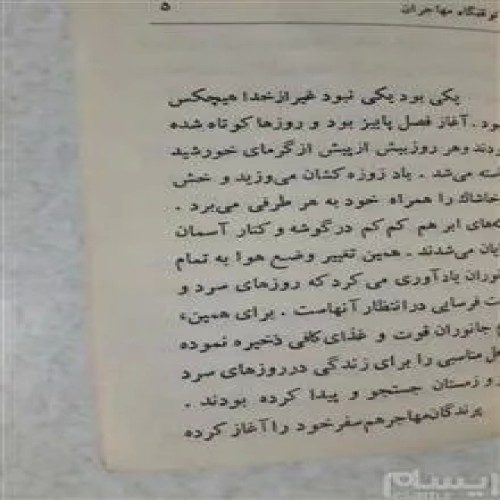 توقفگاه مهاجران ۵
یکی بود یکی نبود غیر از خدا هیچکس
ود . آغاز فصل پاییز بود و روزها کوتاه شده
ودند و هر روز بیش از پیش از گرمای خورشید
استه می‌شد . باد زوزه کشان می‌وزید و خش
خاشاك را همراه خود به هر طرفی می‌برد .
ه‌های ابر هم کم کم در گوشه و کنار آسمان
ایان می‌شدند . همین تغییر وضع هوا به تمام
انوران یادآوری می کرد که روزهای سرد و
ت فرسایی در انتظار آنهاست . برای همین
جانوران قوت و غذای کافی ذخیره نموده
حل مناسبی را برای زندگی در روزهای سرد
و زمستان جستجو و پیدا کرده بودند .
پرندگان مهاجر هم سفر خود را آغاز کرده
ایسام